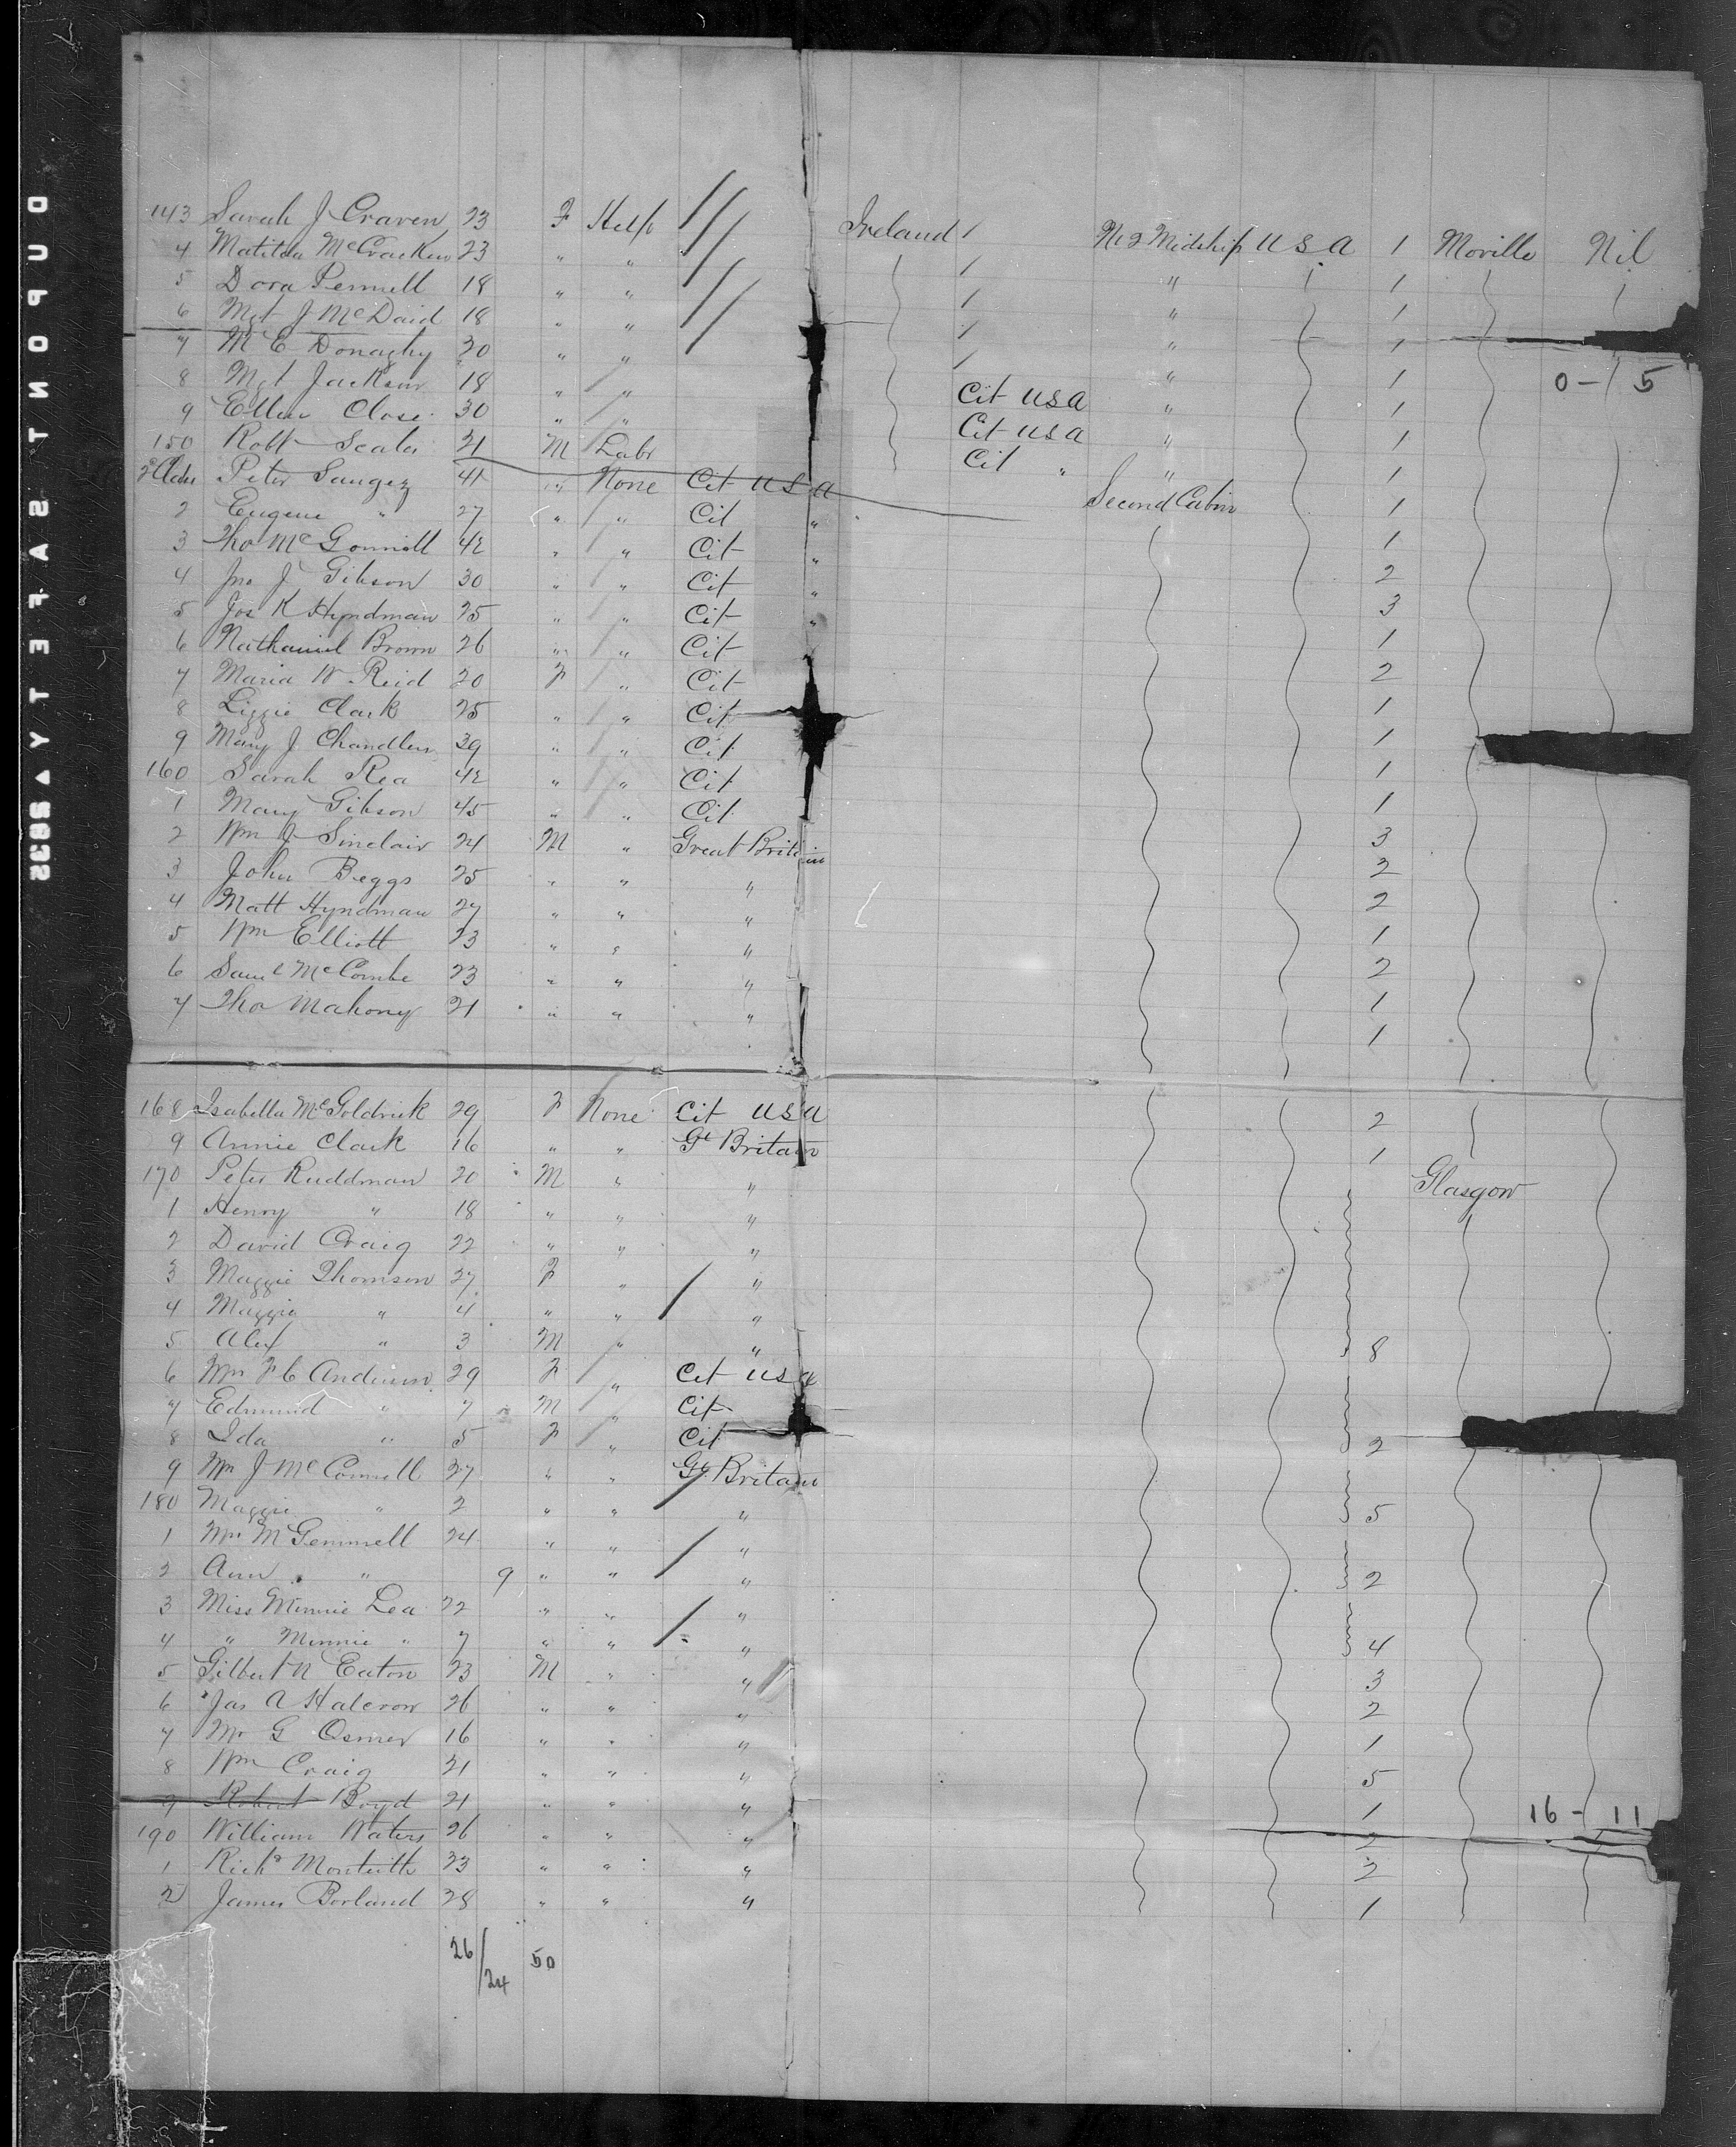 143 Sarah J Craven 23 F Help Ireland / No 2 Midship U S A 1 Moville Nil
4 Matilda McCracken 23 " " / " 1
5 Dora Pennell 18 " " / " 1
6 Mgt J McDaid 18 " " / " 1
7 M E Donaghy 30 " " / " 1
8 Mgt Jackson 18 " " Cit USA " 1 0 - 5
9 Ellen Close 30 " " Cit USA " 1
150 Robt 21 M Labr Cit " " 1
Peter 41 " None Cit USA Second Cabin 1
2 Eugene " 27 " " Cit " 1
3 Tho McGonnill 42 " " Cit " 2
4 Jno J Gibson 30 " " Cit " 3
5 Jos K Hyndman 25 " " Cit " 1
6 Nathaniel Brown 26 " " Cit 2
7 Maria W Reid 20 F " Cit 1
8 Lizzie Clark 25 " " Cit 1
9 Mary J Chandler 39 " " Cit 1
160 Sarah Rea 42 " " Cit 1
1 Mary Gibson 45 " " Cit 3
2 Wm J Sinclair 24 M " Great Britain 2
3 John Beggs 25 " " " 2
4 Matt Hyndman 27 " " " 1
5 Wm Elliott 23 " " " 2
6 Saml McCombe 23 " " " 1
7 Tho Mahony 21 " " " 1
168 Isabella McGoldrick 29 F None Cit USA 2
9 Annie Clark 16 " " Gt Britain 1
170 Peter Ruddman 20 M " " Glasgow
1 Henry " 18 " " "
2 David Craig 22 " " "
3 Maggie Thomson 27 F " "
4 Maggie " 4 " " "
5 Alex " 3 M " " 8
6 Mrs F C Anderson 29 F " Cit USA
7 Edmund " 7 M " Cit
8 Ida " 5 F " Cit 2
9 Mrs J McConnell 27 " " Gt Britain
180 Maggie " 2 " " " 5
1 Mrs McGemmell 24 " " "
2 Ann " 9 " " " 2
3 Miss Minnie Lea 22 " " "
4 " Minnie " 7 " " " 4
5 Gilbert N Eaton 23 M " " 3
6 Jas A Halcrow 26 " " " 2
7 Mr G Osmer 16 " " " 1
8 Wm Craig 21 " " " 5
9 Robert Boyd 21 " " " 1 16 - 11
190 William Waters 26 " " " 2
1 Richd Monteith 23 " " " 2
2 James Borland 28 " " " 1
26/24 50